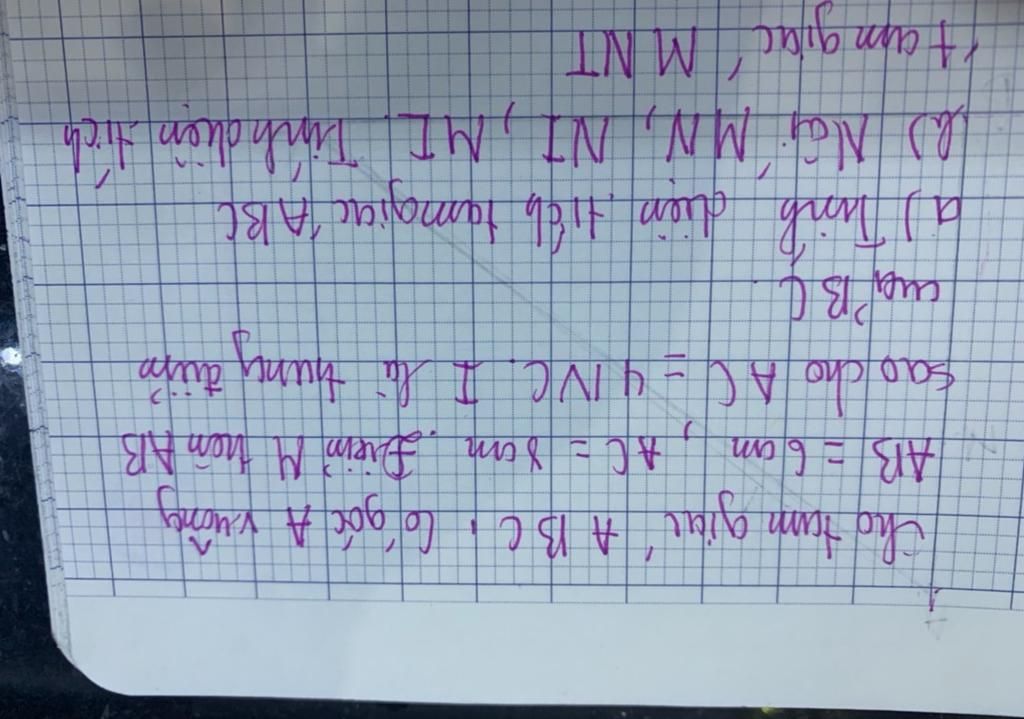 Cho tam giác ABC, có góc A vuông
AB = 6cm, AC = 8cm. Điểm M trên AB
sao cho AC = 4NC. I là trung điểm
của BC.
a) Tính diện tích tam giác ABC
b) Nối MN, NI, MI. Tính diện tích
tam giác MNI